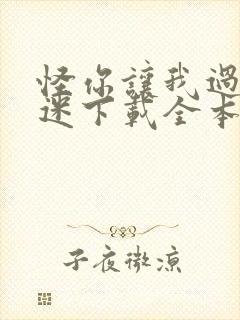 怪你讓我過
迷下載全本
子夜微涼